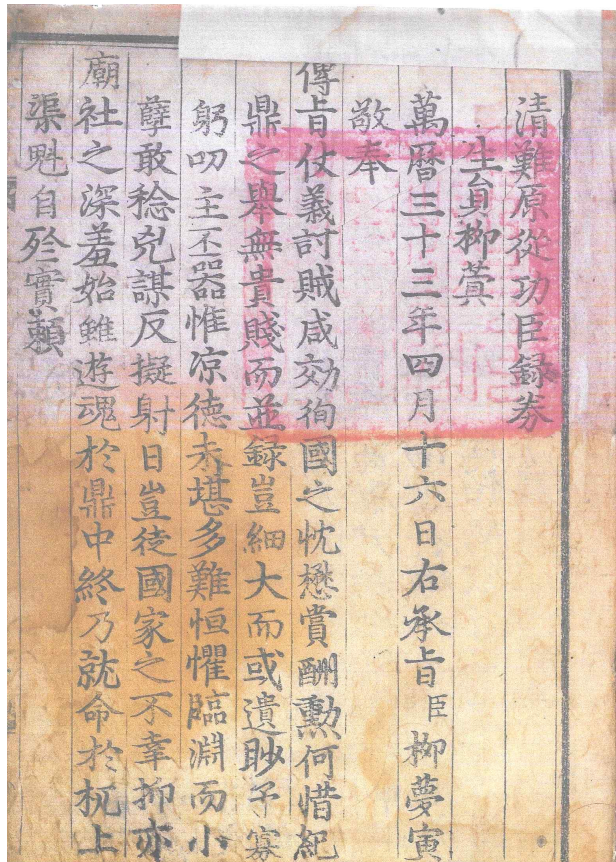 清難原從功臣錄券
生員柳蓂
萬曆三十三年四月十六日右承旨臣柳夢寅
敬奉
傳旨仗義討賊咸效徇國之忱懋賞酬勳何惜紀
鼎之舉無貴賤而並錄豈細大而或遺眇予寡
躬叨主丕器惟凉德未堪多難恒懼臨淵而小
孽敢稔兇謀反擬射日豈徒國家之不幸抑亦
廟社之深羞始雖遊魂於鼎中終乃就命於杌上
渠魁自殄實賴